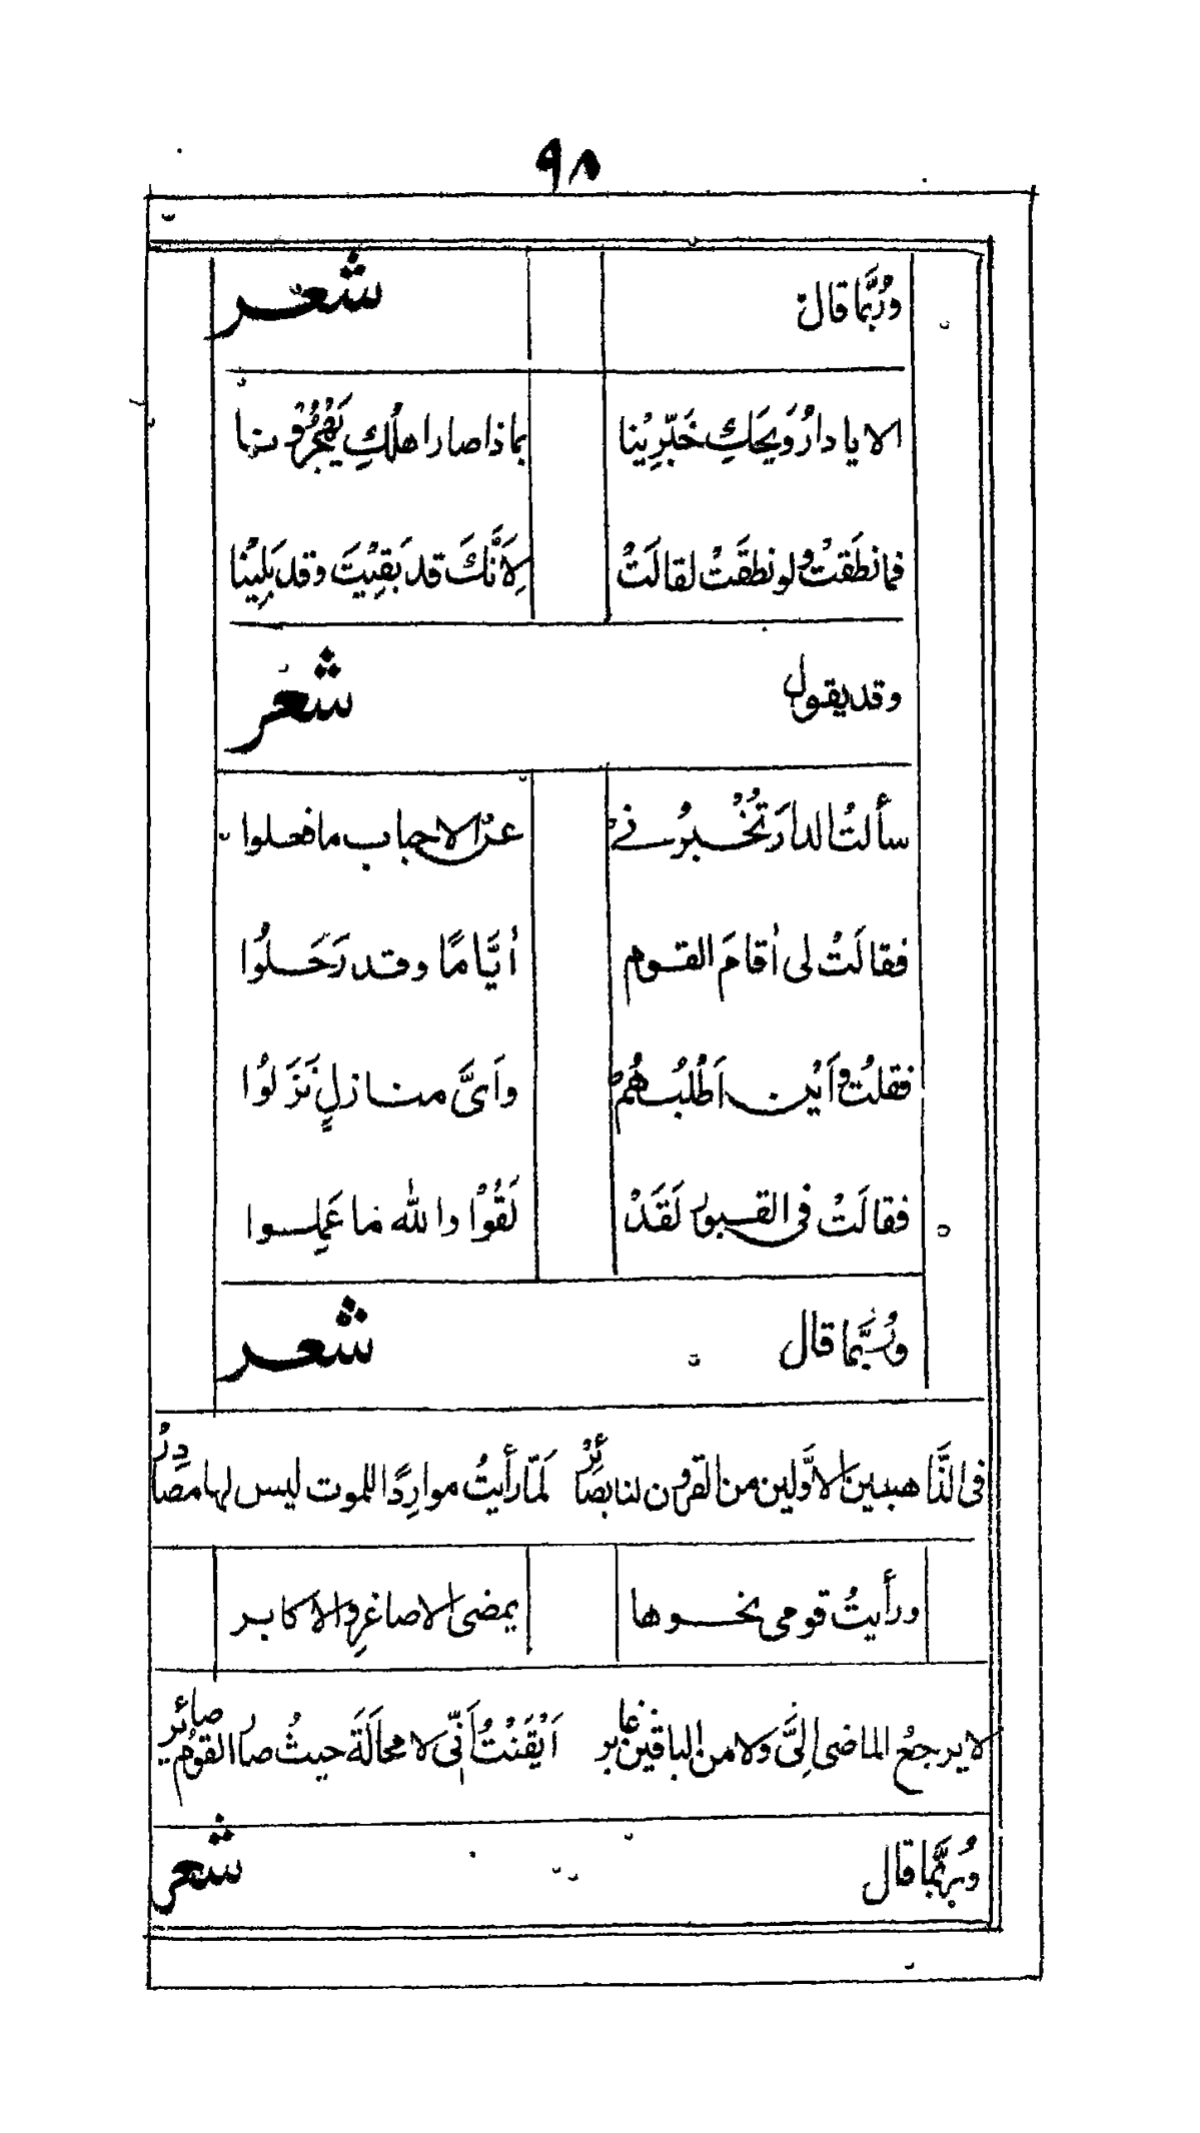 ٩٨
وَرُبَّما قال شعر
الا يا دارُ وَيحَكِ خَبِّرِيْنا بماذا صار اهلُكِ يَهْجُرُوْنا
فما نطَقَتْ ولو نطقَتْ لقالَتْ لِأَنَّكَ قد بَقِيْتَ وقد بَلِيْنا
وقد يقول شعر
سألتُ الدارَ تُخْبِرُنى عن الاحباب ما فعلوا
فقالَتْ لى أقامَ القوم أيَّامًا وقد رَحَلُوا
فقلتُ وأيْن أطْلُبُهُمْ وأىَّ منازلٍ نَزَلُوْا
فقالَتْ فى القبور لَقَدْ لَقُوْا والله ما عَمِلوا
وَرُبَّما قال شعر
فى الذَّاهبين الاوَّلين من القرون لنا بصَائِرْ لَمّا رأيتُ موارِدًا للموت ليس لها مصَادِرْ
ورأيتُ قومى نحوها يمضى الاصاغرُ والاكابر
لا يرجعُ الماضى إلىَّ ولا من الباقين غابر اَيْقَنْتُ أنّى لا محالَةَ حيثُ صار القوْم صائر
وَرُبَّما قال شعر